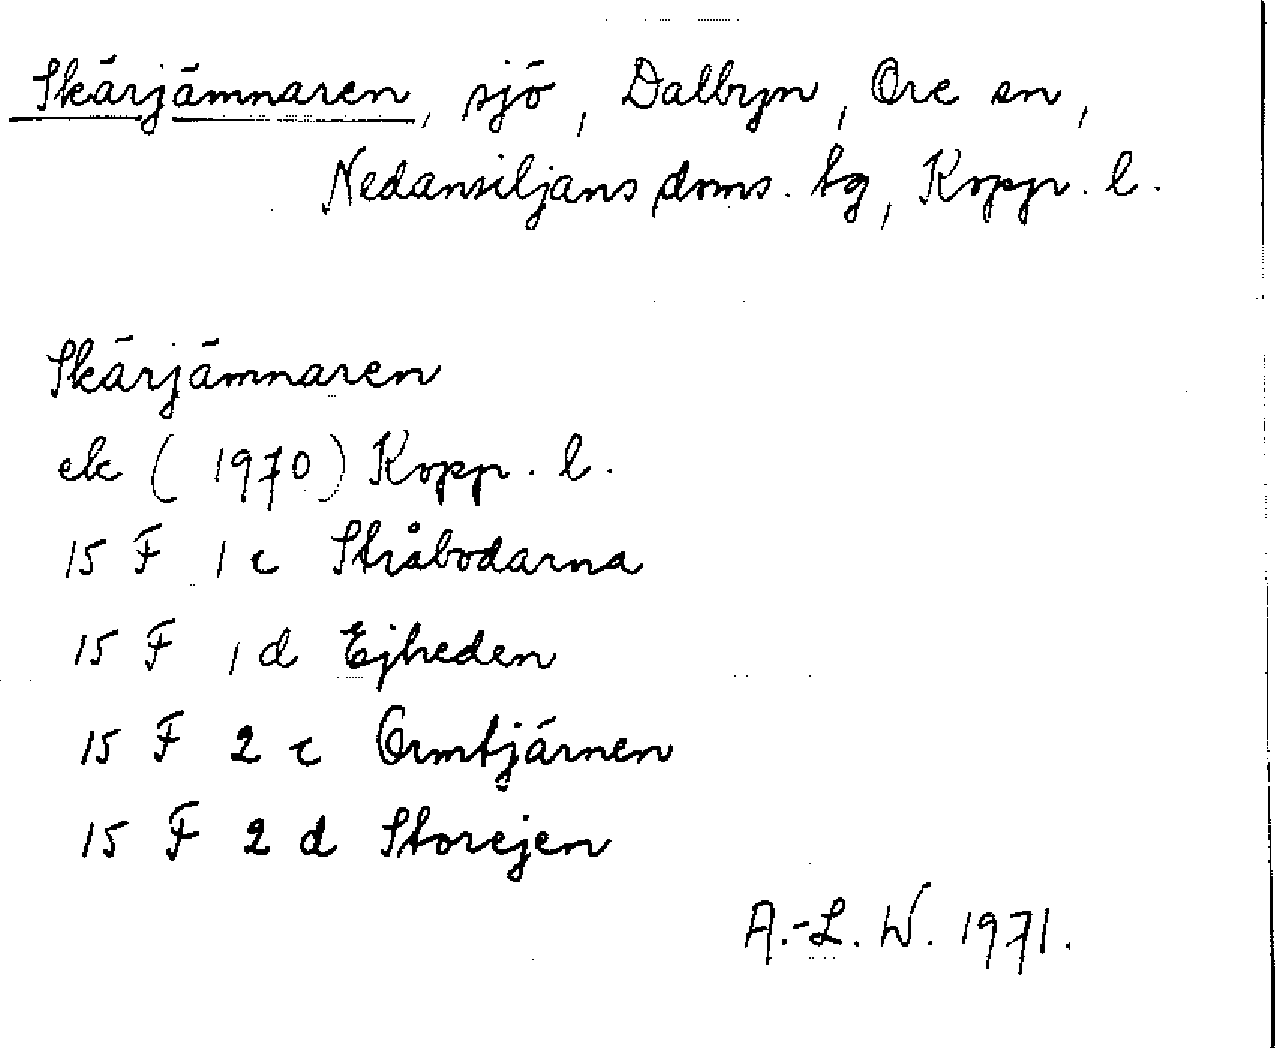 Skärjämnaren, sjö, Dalbyn, Ore sn,
Nedansiljans doms. tg, Kopp. l.
Skärjämnaren
ek (1970) Kopp. l.
15 F 1 c Stråbodarna
15 F 1 d Ejheden
15 F 2 c Ormtjärnen
15 F 2 d Storejen
A.-L. W. 1971.